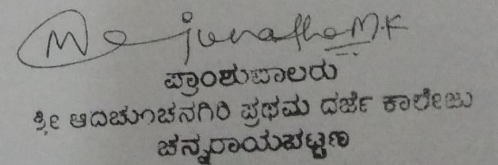 Manjunatha M.K
ಪ್ರಾಂಶುಪಾಲರು
ಶ್ರೀ ಆದಿಚುಂಚನಗಿರಿ ಪ್ರಥಮ ದರ್ಜೆ ಕಾಲೇಜು
ಚನ್ನರಾಯಪಟ್ಟಣ